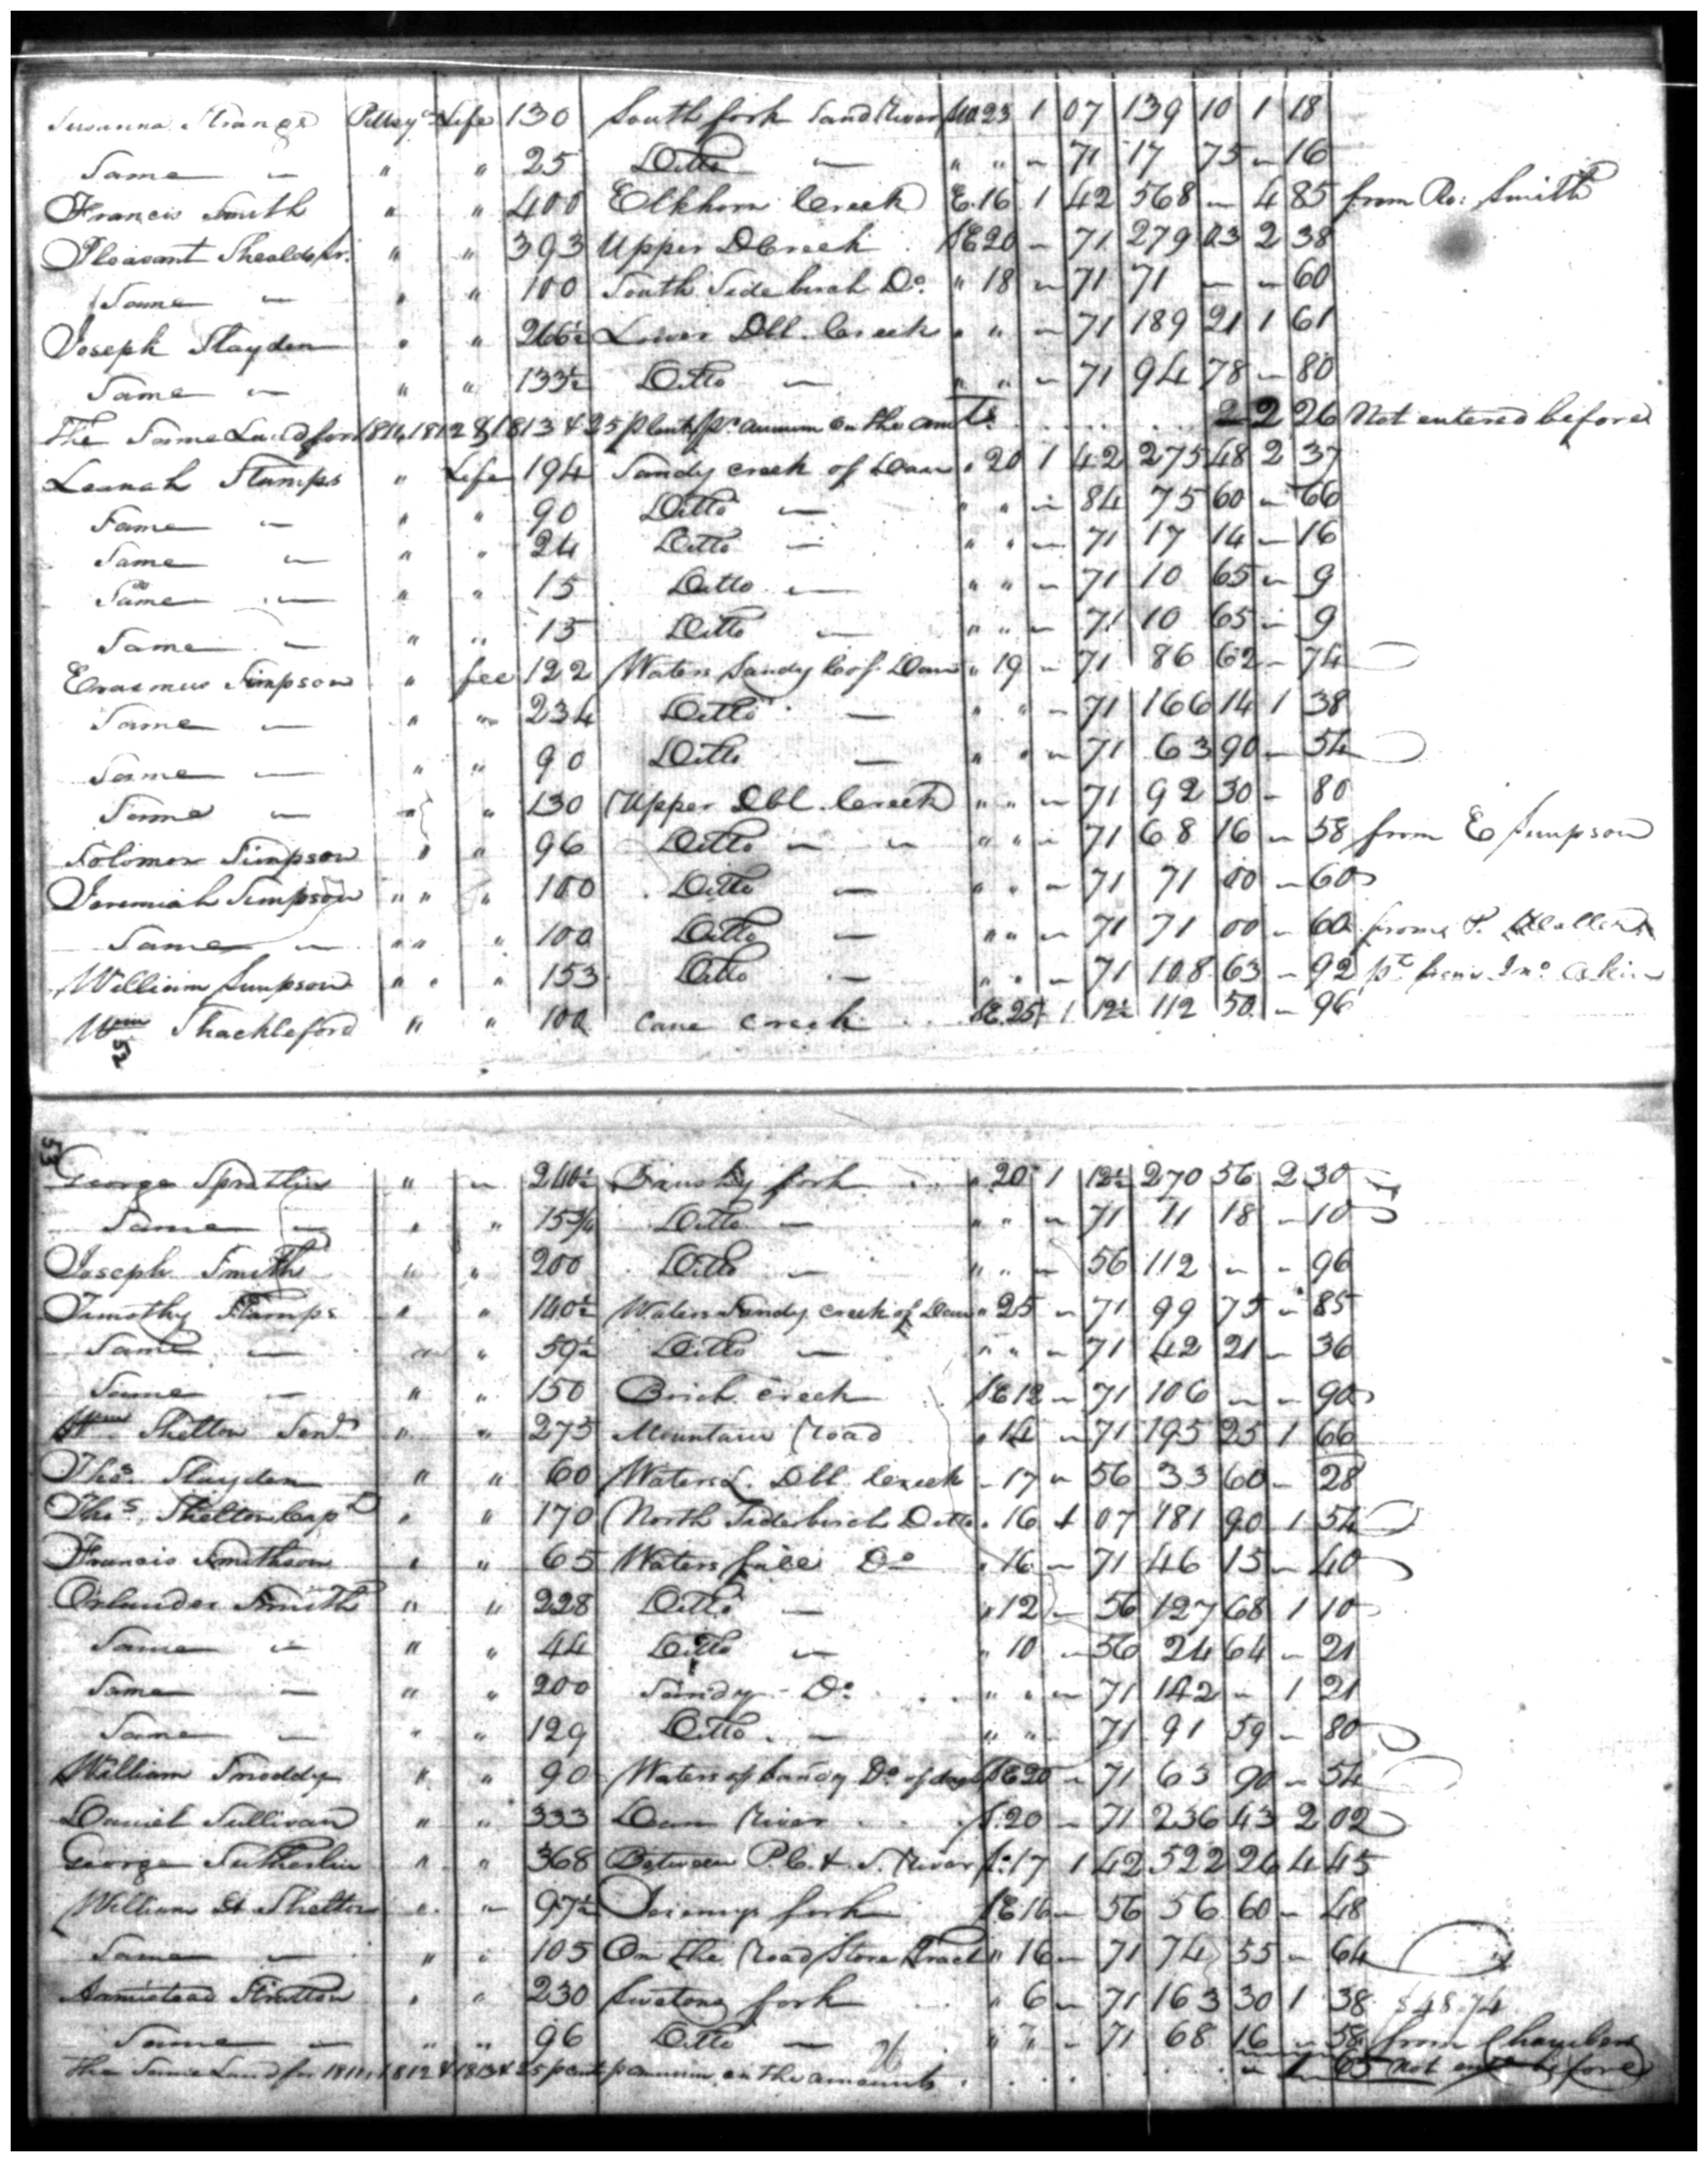 Susanna Strange Pittsy Life 130 South fork Sand River 23 1 07 139 10 1 18
Same — " " 25 Ditto — " " — 71 17 75 — 16
Francis Smith " " 400 Elkhorn Creek E. 16 1 42 568 — 4 85 from Ro: Smith
Pleasant " " 393 Upper D Creek SE 20 — 71 279 03 2 38
Same — " " 100 South Side birch Do. " 18 — 71 71 — — 60
Joseph Slayden " " 266½ Lower Dbl. Creek " " — 71 189 21 1 61
Same — " " 133½ Ditto — " " — 71 94 78 — 80
The Same Land for 1811, 1812 & 1813 & 25 p Cent pr. annum on the amts. 2 26 Not entered before
Leanah Stamps " Life 194 Sandy creek of Dan " 20 1 42 275 48 2 37
Same — " " 90 Ditto — " " — 84 75 60 — 66
Same — " " 24 Ditto — " " — 71 17 14 — 16
Same — " " 15 Ditto — " " — 71 10 65 — 9
Same — " " 15 Ditto — " " — 71 10 65 — 9
Erasmus Simpson " fee 122 Waters Sandy C. of Dan " 19 — 71 86 62 — 74
Same — " " 234 Ditto — " " — 71 166 14 1 38
Same — " " 90 Ditto — " " — 71 63 90 — 54
Same — " " 130 Upper Dbl. Creek " " — 71 92 30 — 80
Solomon Simpson " " 96 Ditto — — " " — 71 68 16 — 58 from E Simpson
Jeremiah Simpson " " " 100 Ditto — " " — 71 71 00 — 60
Same — " " " 100 Ditto — " " — 71 71 00 — 60 from
William Simpson " " " 153 Ditto — " " — 71 108 63 — 92 pt. from Jno.
Wm Shackleford " " 100 Cane creek SE. 25 1 12½ 112 50 — 96
52
53
George Spratlin " — 240½ fork " 20 1 12½ 270 56 2 30
Same — " " 15¾ Ditto — " " — 71 11 18 — 10
Joseph Smith " " 200 Ditto — " " — 56 112 — — 96
Timothy Stamps " " 140½ Waters Sandy creek of Dan " 25 — 71 99 75 — 85
Same — " " 59½ Ditto — " " — 71 42 21 — 36
Same — " " 150 Birch creek SE 12 — 71 106 — — 90
Wm Shelton Senr. " " 275 Mountain Road " 14 — 71 195 25 1 66
Thos. Slayden " " 60 Waters L. Dbl. Creek " 17 — 56 33 60 — 28
Thos. Shelton Capt. " " 170 North Side birch Ditto " 16 1 07 181 90 1 54
Francis Smithson " " 65 Waters fall Do " 16 — 71 46 15 — 40
Orlander Smith " " 228 Ditto — " 12 — 56 127 68 1 10
Same — " " 44 Ditto — " 10 — 56 24 64 — 21
Same — " " 200 Sandy Do. " " — 71 142 — 1 21
Same — " " 129 Ditto — " " 71 91 59 — 80
William Snoddy " " 90 Waters of Sandy Do. of SE 20 — 71 63 90 — 54
Daniel Sullivan " " 333 Dan River S. 20 — 71 236 43 2 02
George Sutherlin " " 368 Between P. C. & S. River 17 1 42 522 26 4 45
William Shelton " — 97½ fork SE 16 — 56 56 60 — 48
Same — " " 105 On the Road Store Tract " 16 — 71 74 55 — 64
Armistead Stratton " " 230 Sweeting fork " 6 — 71 163 30 1 38 $48.74
Same — " " 96 Ditto — " 7 — 71 68 16 — 58 from Chambers
The Same Land for 1811, 1812 & 1813 & 25 p cent p annum on the amounts — 1 65 not entd before